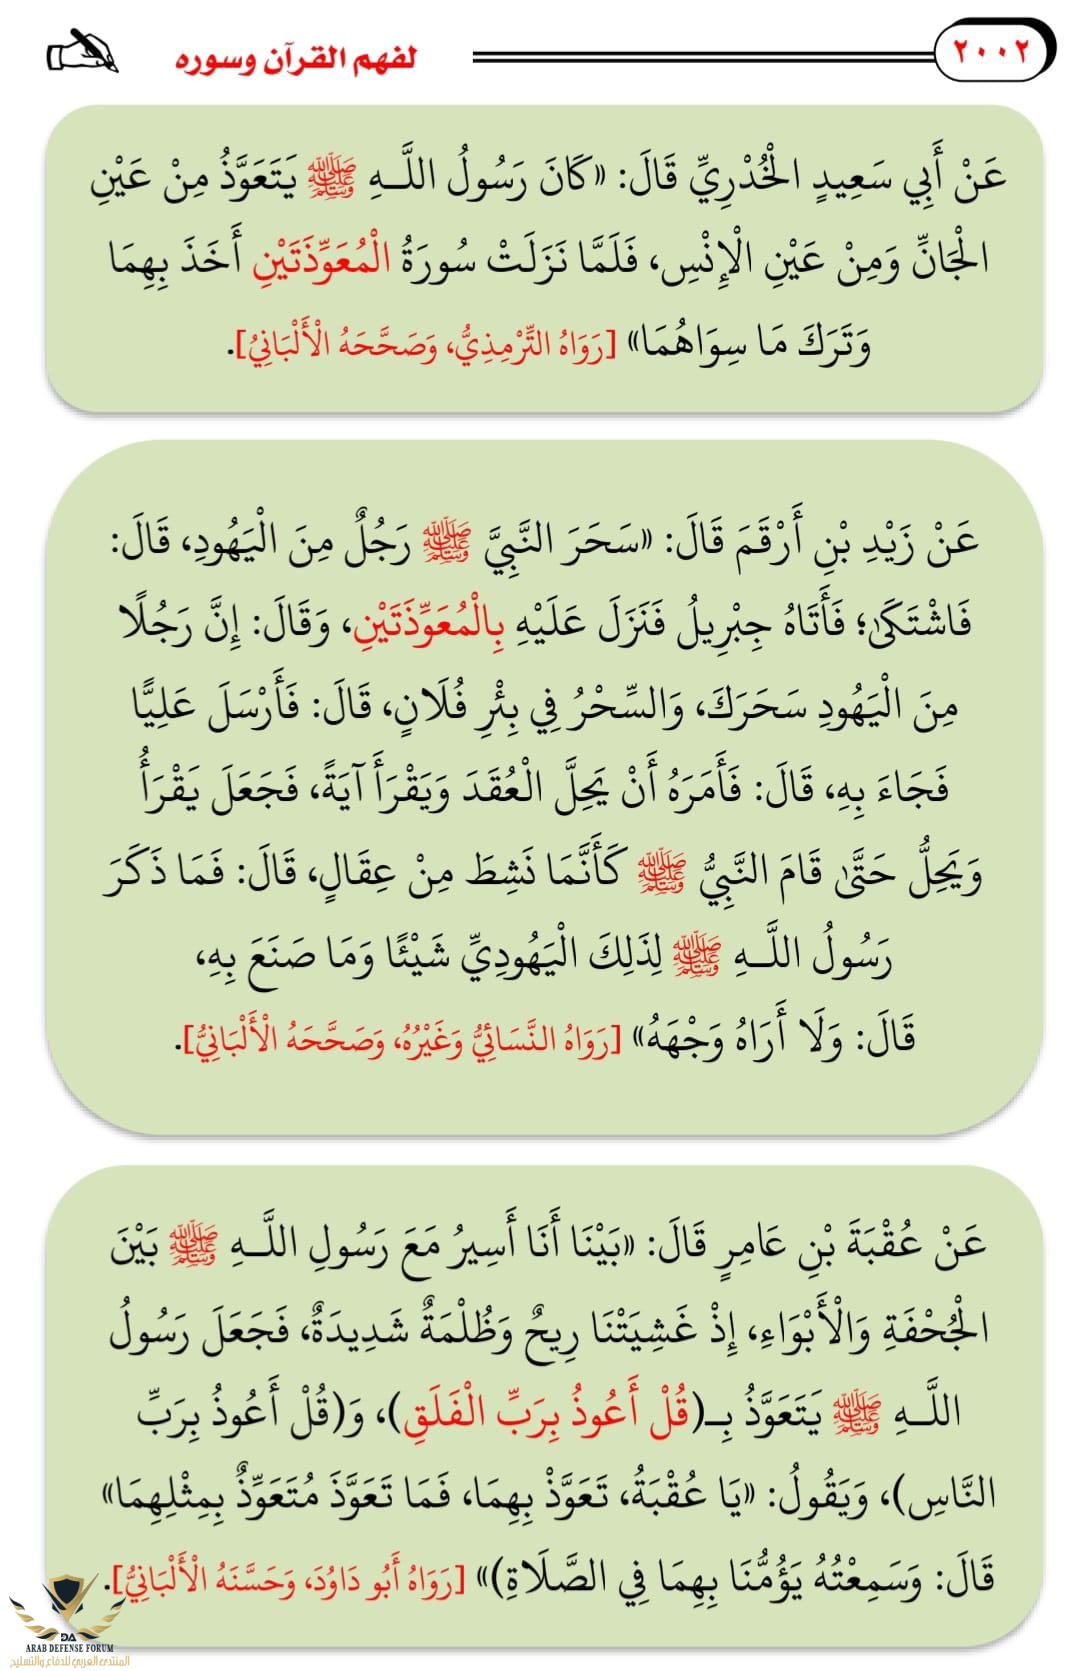 لفهم القرآن وسوره ٢٠٠٢
عَنْ أَبِي سَعِيدٍ الْخُدْرِيِّ قَالَ: «كَانَ رَسُولُ اللَّـهِ ﷺ يَتَعَوَّذُ مِنْ عَيْنِ
الْجَانِّ وَمِنْ عَيْنِ الْإِنْسِ، فَلَمَّا نَزَلَتْ سُورَةُ الْمُعَوِّذَتَيْنِ أَخَذَ بِهِمَا
وَتَرَكَ مَا سِوَاهُمَا» [رَوَاهُ التِّرْمِذِيُّ، وَصَحَّحَهُ الْأَلْبَانِيُ].
عَنْ زَيْدِ بْنِ أَرْقَمَ قَالَ: «سَحَرَ النَّبِيَّ ﷺ رَجُلٌ مِنَ الْيَهُودِ، قَالَ:
فَاشْتَكَىٰ؛ فَأَتَاهُ جِبْرِيلُ فَنَزَلَ عَلَيْهِ بِالْمُعَوِّذَتَيْنِ، وَقَالَ: إِنَّ رَجُلًا
مِنَ الْيَهُودِ سَحَرَكَ، وَالسِّحْرُ فِي بِئْرِ فُلَانٍ، قَالَ: فَأَرْسَلَ عَلِيًّا
فَجَاءَ بِهِ، قَالَ: فَأَمَرَهُ أَنْ يَحِلَّ الْعُقَدَ وَيَقْرَأَ آيَةً، فَجَعَلَ يَقْرَأُ
وَيَحِلُّ حَتَّىٰ قَامَ النَّبِيُّ ﷺ كَأَنَّمَا نَشِطَ مِنْ عِقَالٍ، قَالَ: فَمَا ذَكَرَ
رَسُولُ اللَّـهِ ﷺ لِذَلِكَ الْيَهُودِيِّ شَيْئًا وَمَا صَنَعَ بِهِ،
قَالَ: وَلَا أَرَاهُ وَجْهَهُ» [رَوَاهُ النَّسَائِيُّ وَغَيْرُهُ، وَصَحَّحَهُ الْأَلْبَانِيُّ].
عَنْ عُقْبَةَ بْنِ عَامِرٍ قَالَ: «بَيْنَا أَنَا أَسِيرُ مَعَ رَسُولِ اللَّـهِ ﷺ بَيْنَ
الْجُحْفَةِ وَالْأَبْوَاءِ، إِذْ غَشِيَتْنَا رِيحٌ وَظُلْمَةٌ شَدِيدَةٌ، فَجَعَلَ رَسُولُ
اللَّـهِ ﷺ يَتَعَوَّذُ بِـ(قُلْ أَعُوذُ بِرَبِّ الْفَلَقِ)، وَ(قُلْ أَعُوذُ بِرَبِّ
النَّاسِ)، وَيَقُولُ: «يَا عُقْبَةُ، تَعَوَّذْ بِهِمَا، فَمَا تَعَوَّذَ مُتَعَوِّذٌ بِمِثْلِهِمَا»
قَالَ: وَسَمِعْتُهُ يَؤُمُّنَا بِهِمَا فِي الصَّلَاةِ)» [رَوَاهُ أَبُو دَاوُدَ، وَحَسَّنَهُ الْأَلْبَانِيُّ].
DA
ARAB DEFENSE FORUM
المنتدى العربي للدفاع والتسليح